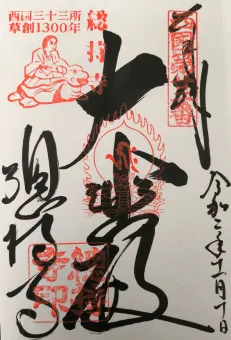 奉拝
西国第廿二番
令和二年十一月十日
大悲殿
総持寺
西国三十三所
草創1300年
総持寺